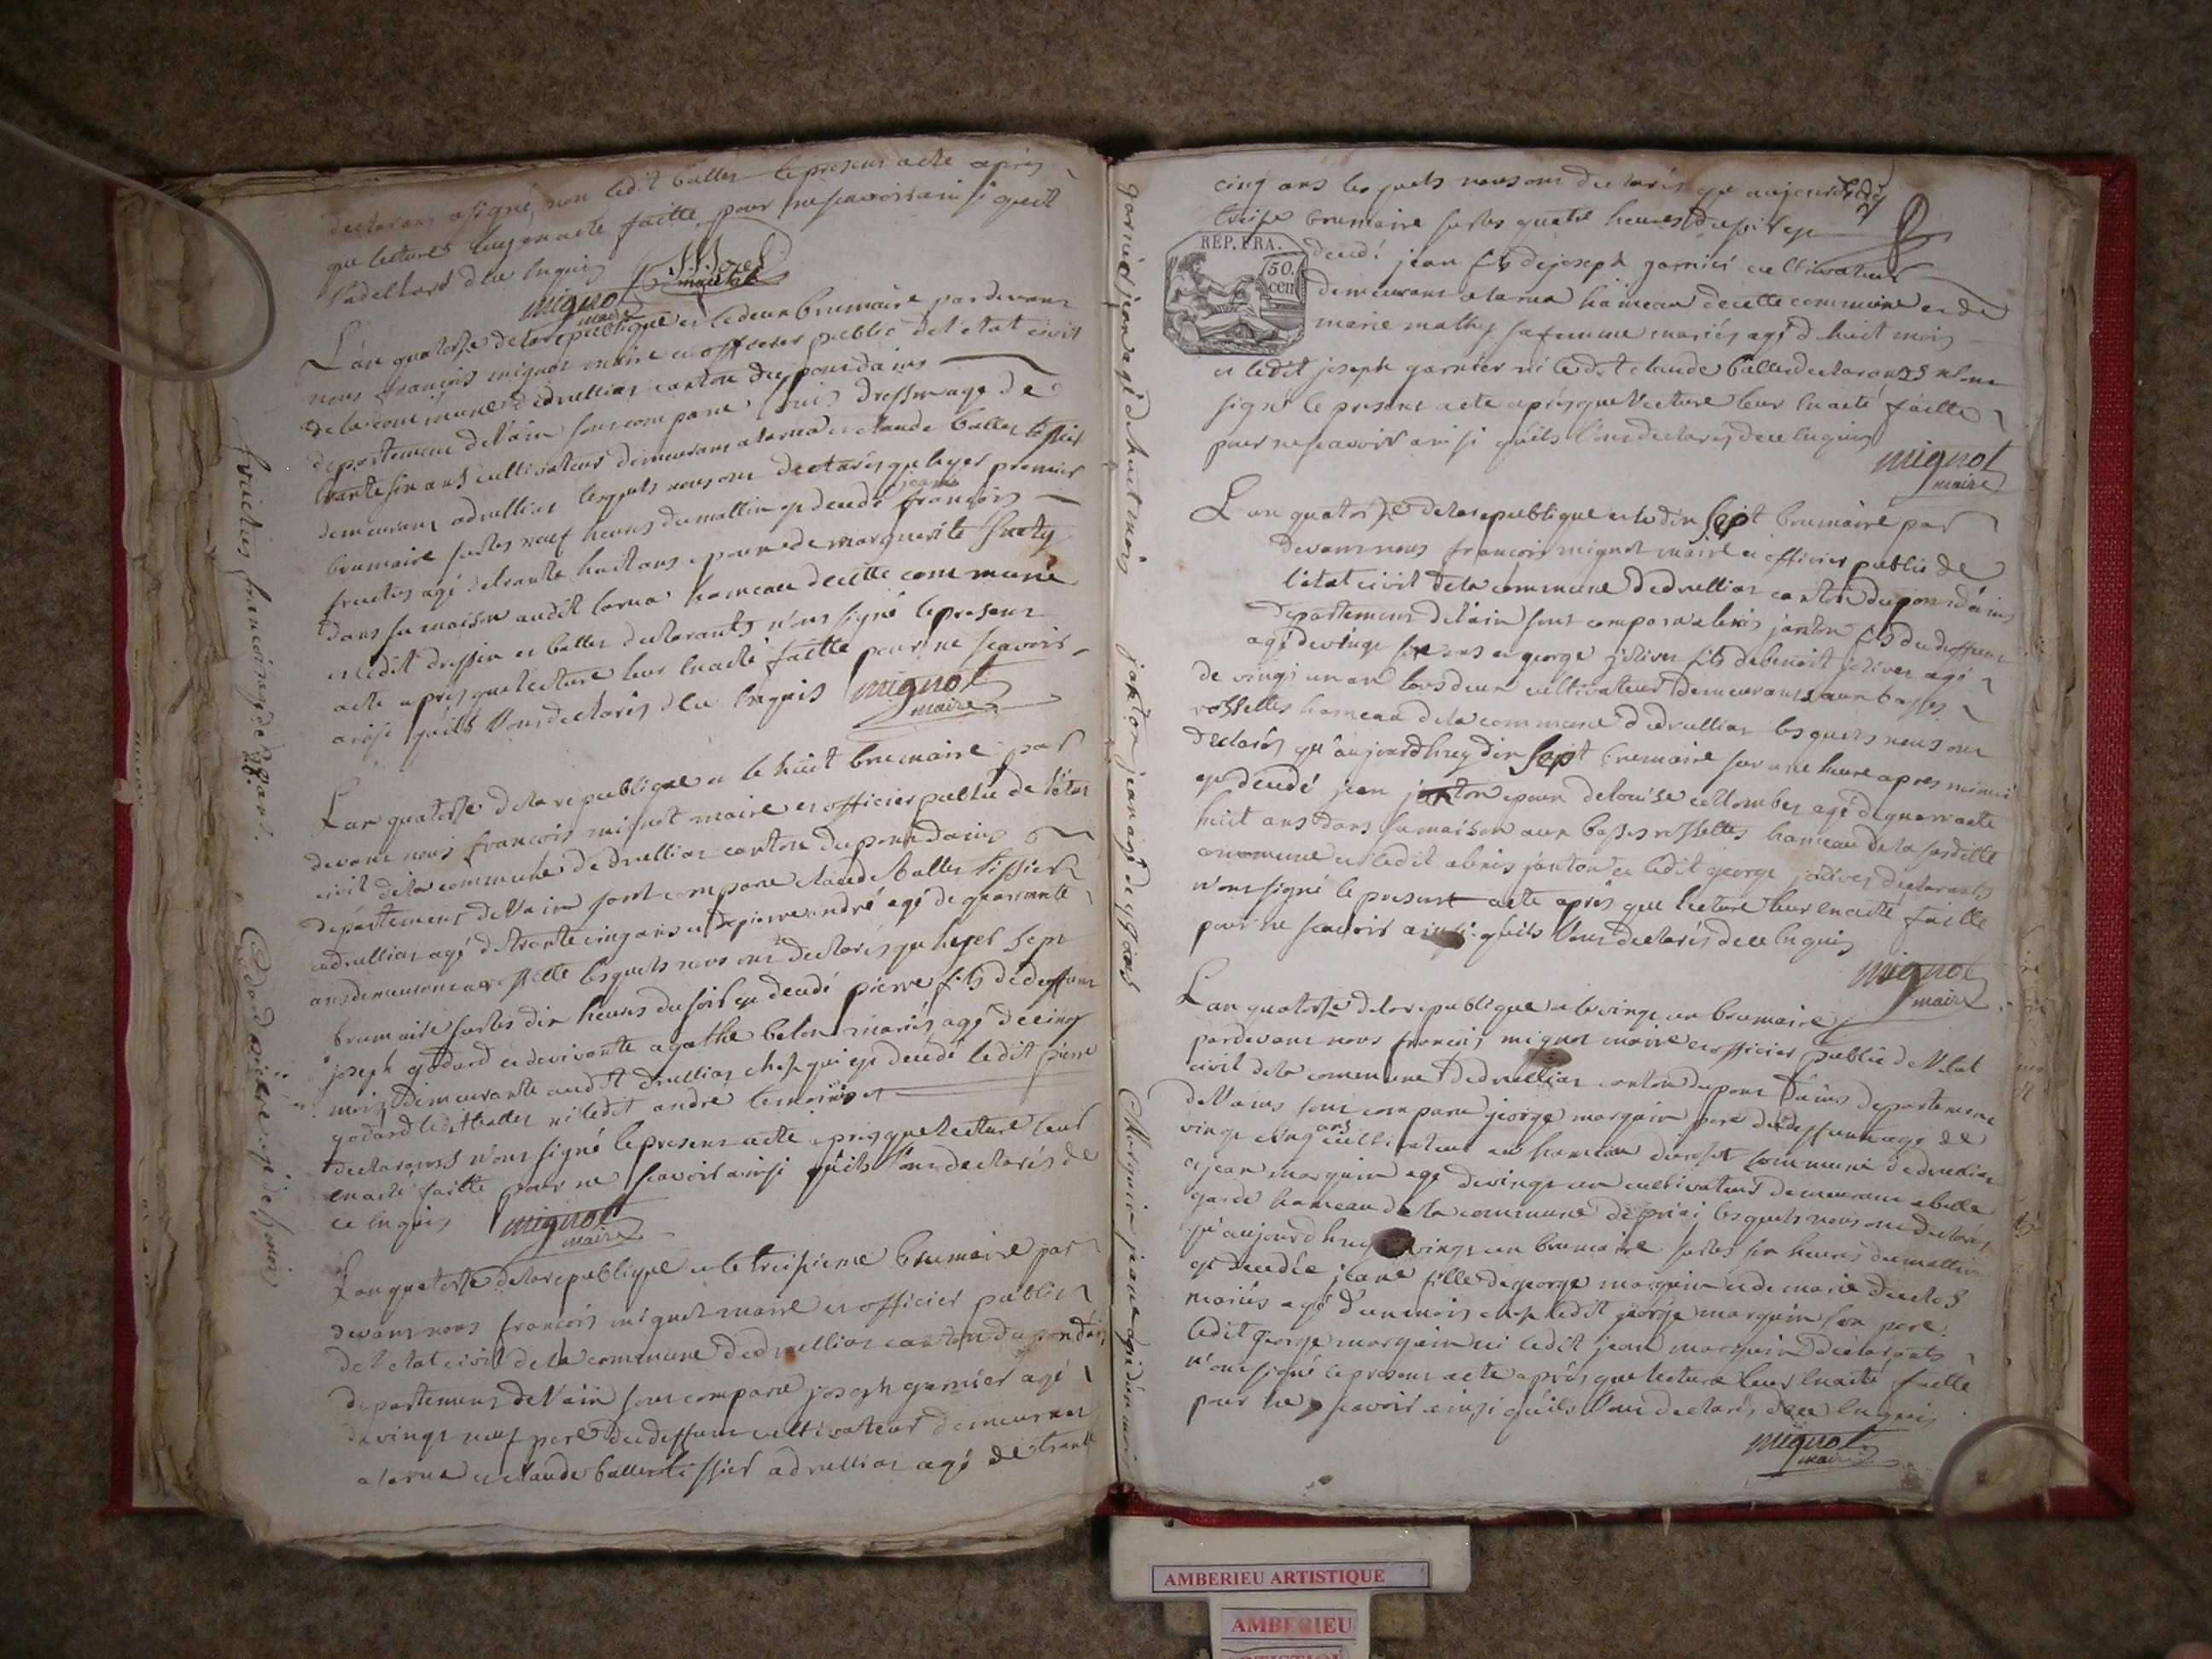 declarans a signé non ledit ballet le present acte après
que lecture luy en acte faitte pour ne scavoir ainsi queil
la declaré d ce enquis
mignot
maire
L'an quatorse de la republique et le deux brumaire par devant
nous francois mignot maire et officier public de l'etat civil
de la commune de druillias canton du pondains
departement de l'ain sont comparu dressin age de
trante six ans cultivateur demeurant a larna et claude ballet tissier
demeurant a druillias lesquels nous ont declarés qu hyer premier
jean
brumaire sur les neuf heures du mattin est decedé francois
fructus agé de trante huit ans epoux de marguerite
dans sa maison audit larna hameau de cette commune
et ledit dressin et ballet declarants n'ont signé le present
acte apres que lecture leur en acté faitte pour ne scavoir
ainsi quils l'ont declarés d ce enquis mignot
maire
L'an quatorse de la republique et le huit brumaire par
devant nous francois mignot maire et officier public de l'état
civil de la commune de druillias canton du pondains
departement de l'ain sont comparu claude ballet tissier
a druillias agé de trante cinq ans et pierre andré agé de quarante
ans demeurant a rossette lesquels nous ont declarés qu hyer sept
brumaire sur les dix heures du soir est decedé pierre fils de deffunt
joseph godard et de vivante agathe belon mariés agé de cinq
mois demeurante audit druillias chez qui est decedé ledit pierre
godard ledit ballet ni ledit andré temoins et
declarants n'ont signé le present acte apres que lecture leur
en acté faitte pour ne scavoir ainsi quils l'ont declarés de
ce enquis mignot
maire
L'an quatorse de la republique et le treisieme brumaire par
devant nous francois mignot maire et officier public
de l'etat civil de la commune de druillias canton du pondains
departement de l'ain sont comparu joseph garnier agé
de vingt neuf pere du deffunt cultivateur demeurant
a larna et claude ballet tissier a druillias agé de trante
fructus francois agé de 38 ans
Godard pierre agé de 5 mois
garnier jean agé de huit mois
janton jean agé de 48 ans
Marguin jeane agé d'un mois
cinq ans lesquels nous ont declarés que aujourdhuy
treise brumaire sur les quatre heures du soir est
REP. FRA.
50.
cen
decedé jean fils de joseph garnier cultivateur
demeurant a larna hameau de cette commune et de
marie mathy sa femme mariés agé d huit mois
et ledit joseph garnier ni ledit claude ballet declarants n'ont
signé le present acte après que lecture leur en acté faitte
pour ne scavoir ainsi quils l'ont declarés de ce enquis
mignot
maire
L'an quatorse de la republique et le dix sept brumaire par
devant nous francois mignot maire et officier public de
l'etat civil de la commune de druillias canton du pondains
departement de l'ain sont comparu janton fils du deffunt
agé de vingt six ans et george joliver fils de benoit joliver agé
de vingt un an tous deux cultivateurs demeurants aux basses
rossettes hameau de la commune d druillias lesquels nous ont
declarés qu'aujourdhuy dix sept brumaire sur une heure apres minuit
est decedé jean janton epoux de louise collomber agé de quarante
huit ans dans sa maison aux basses rossettes hameau de la susditte
commune et ledit janton et ledit george joliver declarants
n'ont signé le present acte après que lecture leur en acté faitte
pour ne scavoir ainsi quils l'ont declarés de ce enquis
mignot
maire
L'an quatorse de la republique et le vingt un brumaire
pardevant nous francois mignot maire et officier public de l'etat
civil de la commune de druillias canton du pont dains departement
de l'ains sont comparu george marguin pere de deffunte agé de
ans
vingt cinq cultivateur au hameau commune de druillias
et jean marguin agé de vingt un cultivateur demeurant a belle
garde hameau de la commune de priai lesquels nous ont declarés
qu'aujourdhuy vingt un brumaire sur les six heures du mattin
est decedée jeane fille de george marguin et de marie
mariés agé d'un mois chez ledit george marguin son pere
ledit george marguin ni ledit jean marguin declarants
n'ont signé le present acte après que lecture leur en acté faitte
pour ne scavoir ainsi quils l'ont declarés de ce enquis
mignot
maire
AMBERIEU ARTISTIQUE
AMBERIEU
ARTISTIQUE